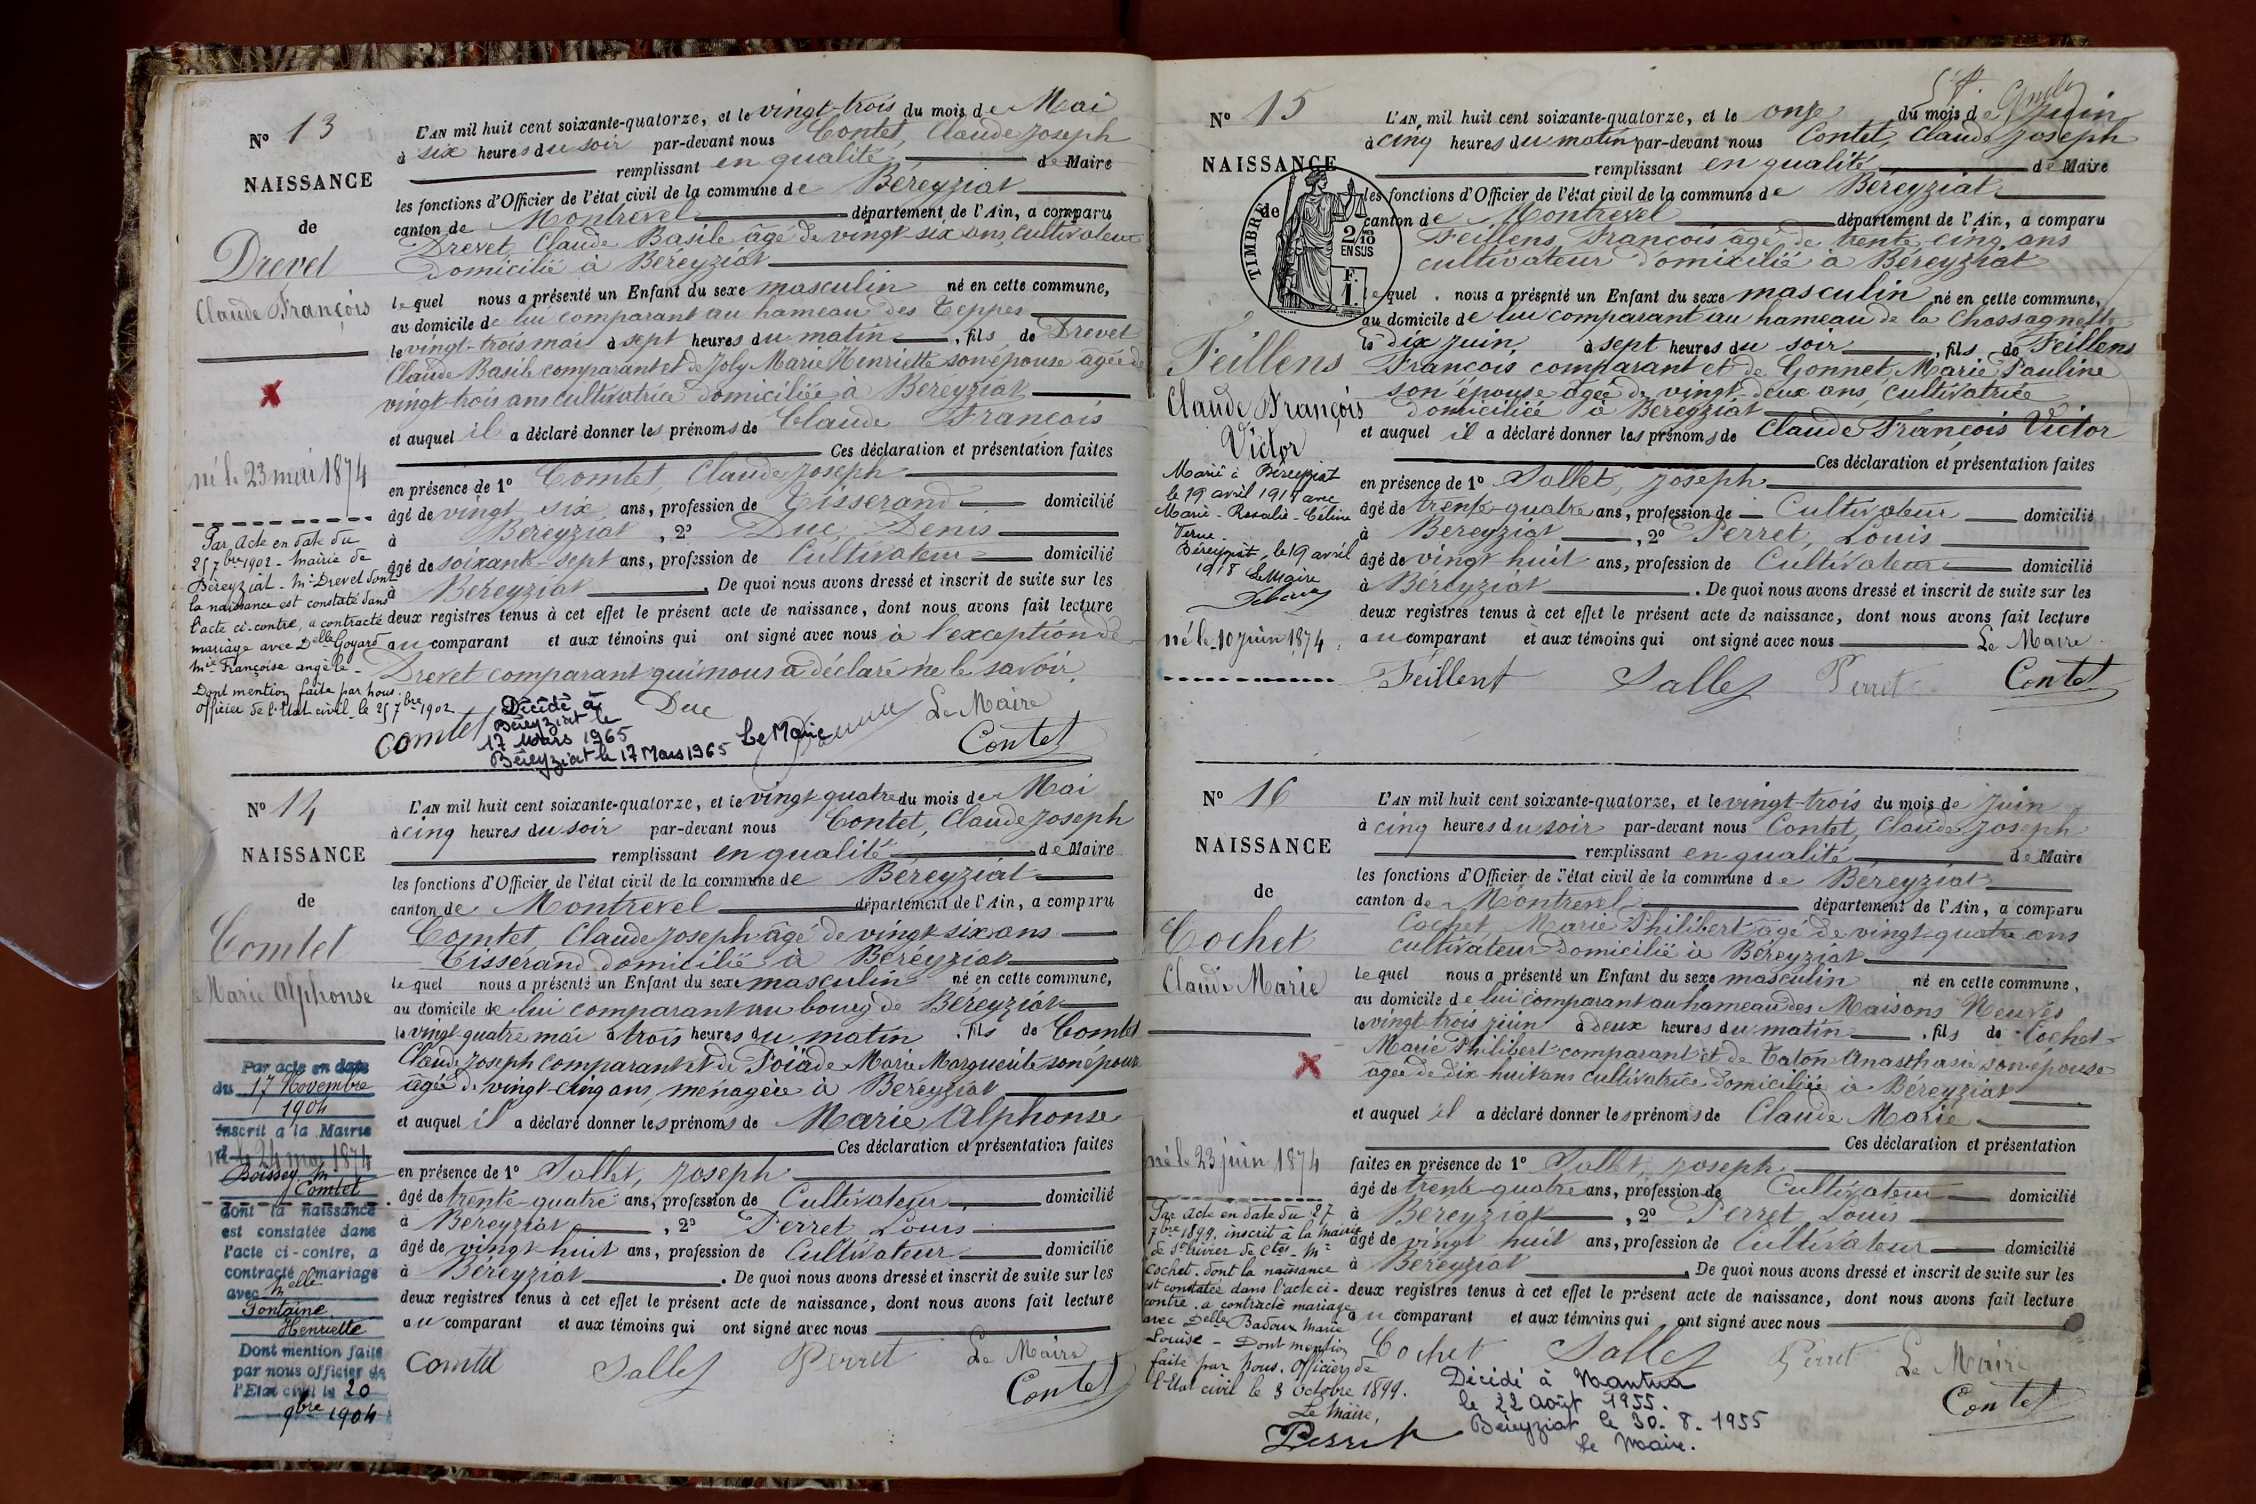 N° 13
NAISSANCE
de
Drevet
Claude François
né le 23 mai 1874
Par Acte en date du
25 7bre 1902 - mairie de
Béreyziat - Mr Drevet dont
la naissance est constaté dans
l'acte ci-contre, a contracté
mariage avec Delle Goyard
Mie Françoise angèle -
Dont mention faite par nous
officier de l'Etat civil le 25 7bre 1902
L'AN mil huit cent soixante-quatorze, et le vingt-trois du mois de Mai
à six heures du soir par-devant nous Contet, Claude Joseph
remplissant en qualité de Maire
les fonctions d'Officier de l'état civil de la commune de Béreyziat
canton de Montrevel département de l'Ain, a comparu
Drevet, Claude Basile âgé de vingt-six ans, Cultivateur
domicilié à Béreyziat
lequel nous a présenté un Enfant du sexe masculin né en cette commune,
au domicile de lui comparant au hameau des Teppes
le vingt-trois mai à sept heures du matin, fils de Drevet
Claude Basile comparant et de Joly Marie Henriette son épouse agée de
vingt-trois ans cultivatrice domiciliée à Béreyziat
et auquel il a déclaré donner les prénoms de Claude François
Ces déclaration et présentation faites
en présence de 1° Comtet, Claude Joseph
âgé de vingt six ans, profession de Tisserand domicilié
à Béreyziat, 2° Duc, Denis
âgé de soixante-sept ans, profession de Cultivateur domicilié
à Béreyziat. De quoi nous avons dressé et inscrit de suite sur les
deux registres tenus à cet effet le présent acte de naissance, dont nous avons fait lecture
au comparant et aux témoins qui ont signé avec nous à l'exception de
Drevet comparant qui nous a déclaré ne le savoir.
Comtet Duc Le Maire
Contet
Décédé à
Béreyziat le
17 Mars 1965
Béreyziat le 17 Mars 1965
Le Maire
N° 14
NAISSANCE
de
Comtet
Marie Alphonse
né le 24 mai 1874
Par acte en date
du 17 Novembre
1904
inscrit à la Mairie
d
Boissey Mr
Comtet
dont la naissance
est constatée dans
l'acte ci-contre, a
contracté mariage
avec Melle
Fontaine
Henriette
Dont mention faite
par nous officier de
l'Etat civil le 20
9bre 1904
L'AN mil huit cent soixante-quatorze, et le vingt quatre du mois de Mai
à cinq heures du soir par-devant nous Contet, Claude Joseph
remplissant en qualité de Maire
les fonctions d'Officier de l'état civil de la commune de Béreyziat
canton de Montrevel département de l'Ain, a comparu
Comtet, Claude Joseph âgé de vingt six ans
Tisserand domicilié à Béréyziat
lequel nous a présenté un Enfant du sexe masculin né en cette commune,
au domicile de lui comparant au bourg de Béreyziat
le vingt-quatre mai à trois heures du matin, fils de Comtet
Claude Joseph comparant et de Poiade Marie Marguerite son épouse
âgée de vingt-cinq ans, ménagère à Béreyziat
et auquel il a déclaré donner les prénoms de Marie Alphonse
Ces déclaration et présentation faites
en présence de 1° Sallet, Joseph
âgé de trente-quatre ans, profession de Cultivateur domicilié
à Béreyziat, 2° Perret, Louis
âgé de vingt-huit ans, profession de Cultivateur domicilié
à Béreyziat. De quoi nous avons dressé et inscrit de suite sur les
deux registres tenus à cet effet le présent acte de naissance, dont nous avons fait lecture
au comparant et aux témoins qui ont signé avec nous
Comtet Sallet Perret Le Maire
Contet
N° 15
NAISSANCE
de
TIMBRE
2/10
EN SUS
F.
1.
Feillens
Claude François
Victor
Marié à Béreyziat
le 19 avril 1918 avec
Marie-Rosalie-Céline
Verne.
Béreyziat, le 19 avril
1918 Le Maire
né le 10 juin 1874
L'AN mil huit cent soixante-quatorze, et le onze du mois de Juin
à cinq heures du matin par-devant nous Contet, Claude Joseph
remplissant en qualité de Maire
les fonctions d'Officier de l'état civil de la commune de Béreyziat
canton de Montrevel département de l'Ain, a comparu
Feillens, François âgé de trente-cinq ans
cultivateur domicilié à Béreyziat
lequel nous a présenté un Enfant du sexe masculin né en cette commune,
au domicile de lui comparant au hameau de la Chassagnette
le dix juin, à sept heures du soir, fils de Feillens
François comparant et de Gonnet, Marie Pauline
son épouse agée de vingt-deux ans, cultivatrice
domiciliée à Béreyziat
et auquel il a déclaré donner les prénoms de Claude François Victor
Ces déclaration et présentation faites
en présence de 1° Sallet, Joseph
âgé de trente-quatre ans, profession de Cultivateur domicilié
à Béreyziat, 2° Perret, Louis
âgé de vingt huit ans, profession de Cultivateur domicilié
à Béreyziat. De quoi nous avons dressé et inscrit de suite sur les
deux registres tenus à cet effet le présent acte de naissance, dont nous avons fait lecture
au comparant et aux témoins qui ont signé avec nous Le Maire
Feillent Sallet Perret Contet
N° 16
NAISSANCE
de
Cochet
Claude Marie
né le 23 juin 1874
Par Acte en date du 27
7bre 1899, inscrit à la mairie
de St Trivier de Ctes - Mr
Cochet, dont la naissance
est constatée dans l'acte ci-
contre, a contracté mariage
avec Delle Badoux Marie
Louise - Dont mention
faite par nous, Officier de
l'Etat civil le 3 Octobre 1899.
Le Maire,
Perret
L'AN mil huit cent soixante-quatorze, et le vingt-trois du mois de Juin
à cinq heures du soir par-devant nous Contet, Claude Joseph
remplissant en qualité de Maire
les fonctions d'Officier de l'état civil de la commune de Béreyziat
canton de Montrevel département de l'Ain, a comparu
Cochet, Marie Philibert âgé de vingt-quatre ans
cultivateur domicilié à Béreyziat
lequel nous a présenté un Enfant du sexe masculin né en cette commune,
au domicile de lui comparant au hameau des Maisons Neuves
le vingt-trois juin à deux heures du matin, fils de Cochet
Marie Philibert comparant et de Caton Anasthasie son épouse
agée de dix-huit ans cultivatrice domiciliée à Béreyziat
et auquel il a déclaré donner les prénoms de Claude Marie
Ces déclaration et présentation
faites en présence de 1° Sallet, Joseph
âgé de trente-quatre ans, profession de Cultivateur domicilié
à Béreyziat, 2° Perret Louis
âgé de vingt huit ans, profession de Cultivateur domicilié
à Béreyziat. De quoi nous avons dressé et inscrit de suite sur les
deux registres tenus à cet effet le présent acte de naissance, dont nous avons fait lecture
au comparant et aux témoins qui ont signé avec nous
Cochet Sallet Perret Le Maire
Contet
Décédé à Nantua
le 22 Août 1955.
Béreyziat le 30.8.1955
Le Maire.